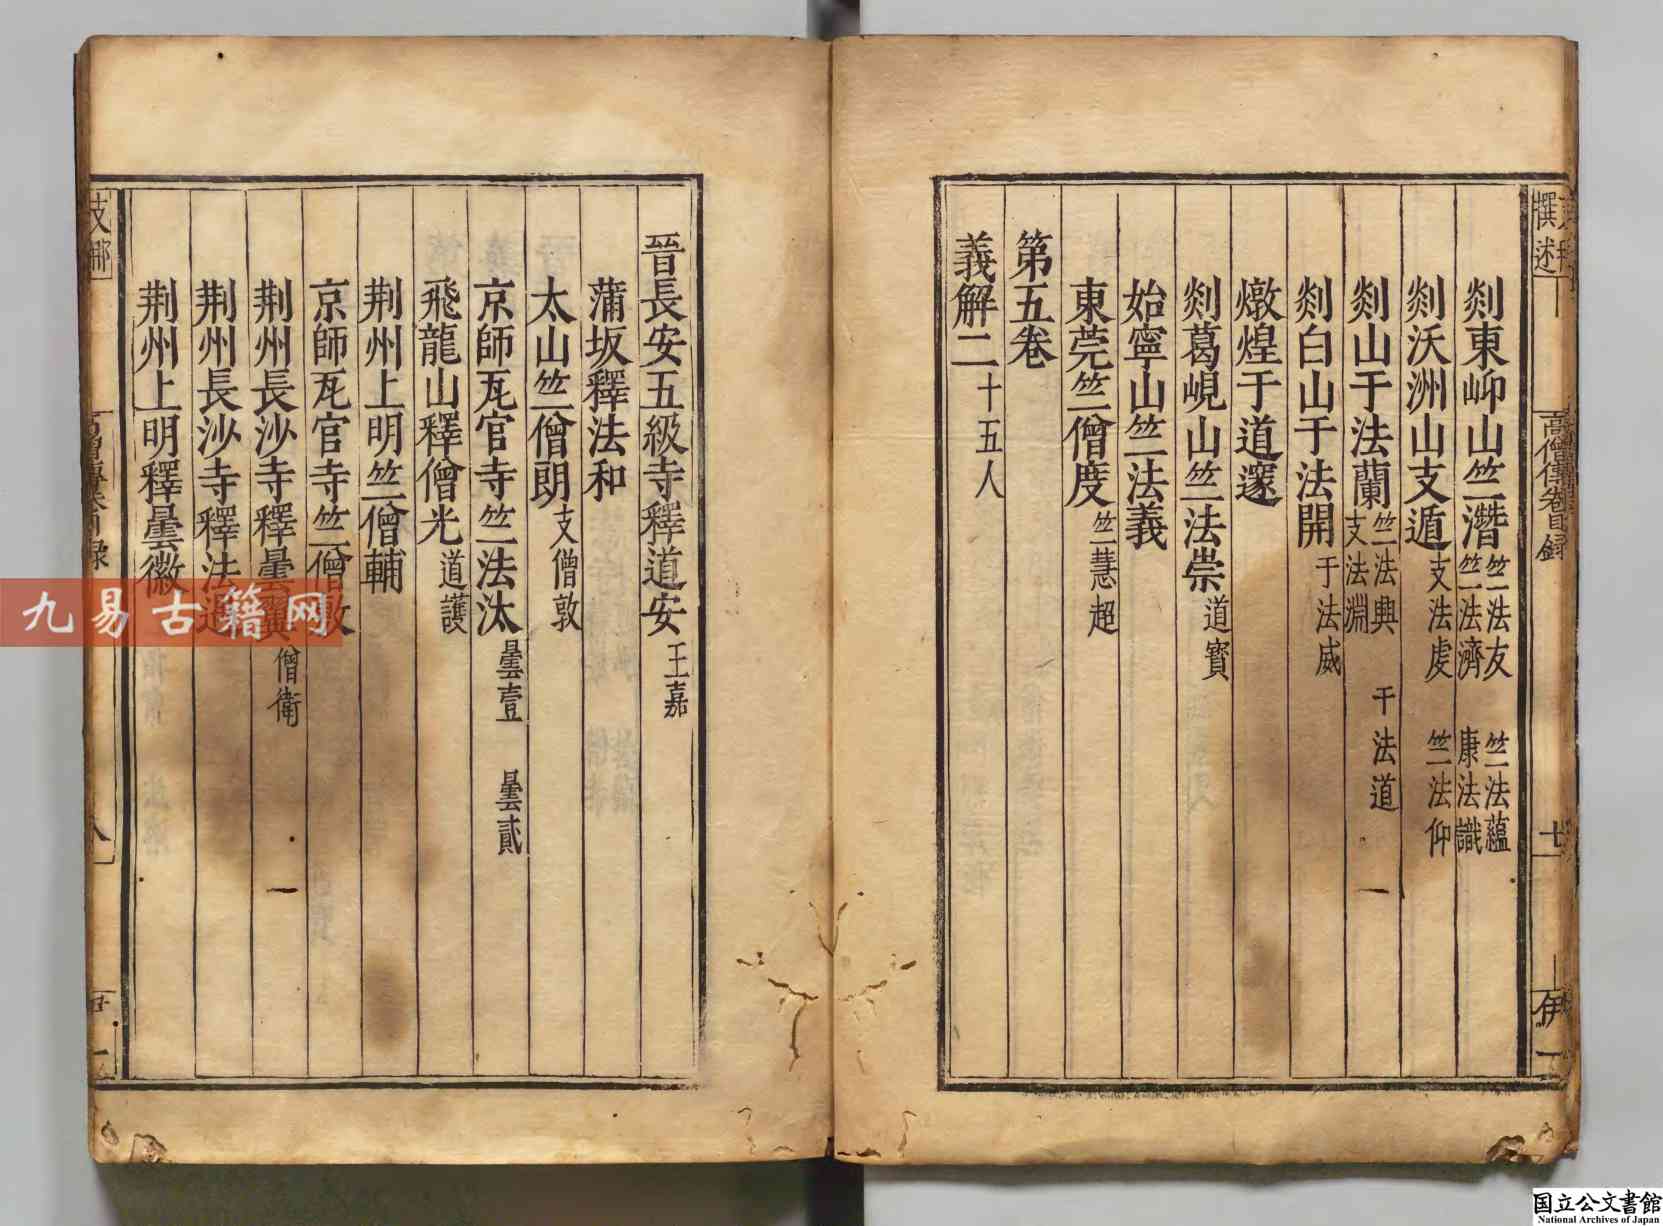 剡東岬山竺潛 竺法友 竺法蘊 竺法濟 康法識
剡沃洲山支遁 支法虔 竺法仰
剡山于法蘭 竺法興 支法淵 于法道
剡白山于法開 于法威
燉煌于道邃
剡葛峴山竺法崇 道寶
始寧山竺法義
東莞竺僧度 竺慧超
第五卷
義解二 十五人
晉長安五級寺釋道安 王嘉
蒲坂釋法和
太山竺僧朗 支僧敦
京師瓦官寺竺法汰 曇壹 曇貳
飛龍山釋僧光 道護
荆州上明竺僧輔
京師瓦官寺竺僧敷
荆州長沙寺釋曇翼 僧衛
荆州長沙寺釋法遇
荆州上明釋曇徽
撰述
高僧傳卷目録
七
伊一
支那
八
九易古籍网
国立公文書館
National Archives of Japan